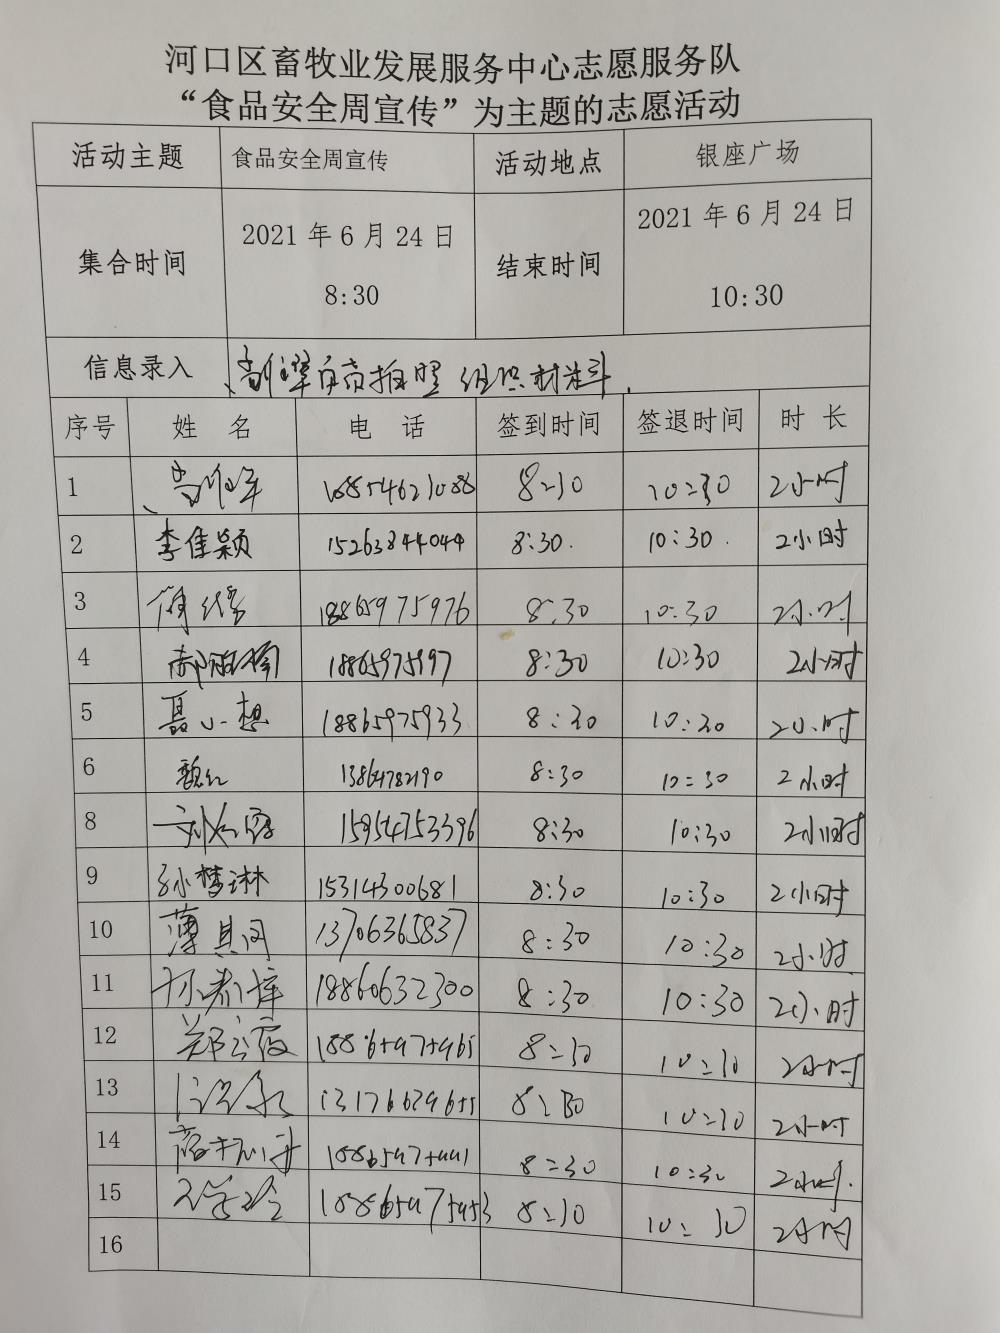 河口区畜牧业发展服务中心志愿服务队
“食品安全周宣传”为主题的志愿活动
活动主题 食品安全周宣传 活动地点 银座广场
集合时间 2021 年 6 月 24 日 8:30 结束时间 2021 年 6 月 24 日 10:30
信息录入 组织材料
序号 姓 名 电 话 签到时间 签退时间 时 长
1 18854621088 8:30 10:30 2小时
2 李佳颖 15263844044 8:30. 10:30. 2小时
3 18865975976 8:30 10:30 2小时
4 18865975997 8:30 10:30 2小时
5 聂小想 18865975933 8:30 10:30 2小时
6 魏红 13864782190 8:30 10:30 2小时
8 15954753396 8:30 10:30 2小时
9 孙梦琳 15314300681 8:30 10:30 2小时
10 薄其同 13706365837 8:30 10:30 2小时
11 18860632300 8:30 10:30 2小时
12 郑 18865975965 8:30 10:30 2小时
13 8:30 10:30 2小时
14 18865975991 8:30 10:30 2小时
15 18865975953 8:30 10:30 2小时
16